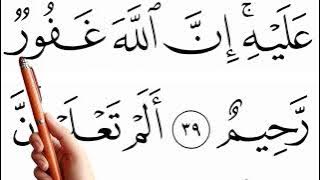 عَلَيْهِ ۚ إِنَّ ٱللَّهَ غَفُورٌ
رَّحِيمٌ ٣٩ أَلَمْ تَعْلَمْ أَنَّ